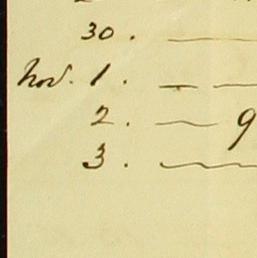 30. —
Nov. 1. — —
2. — 9
3. —